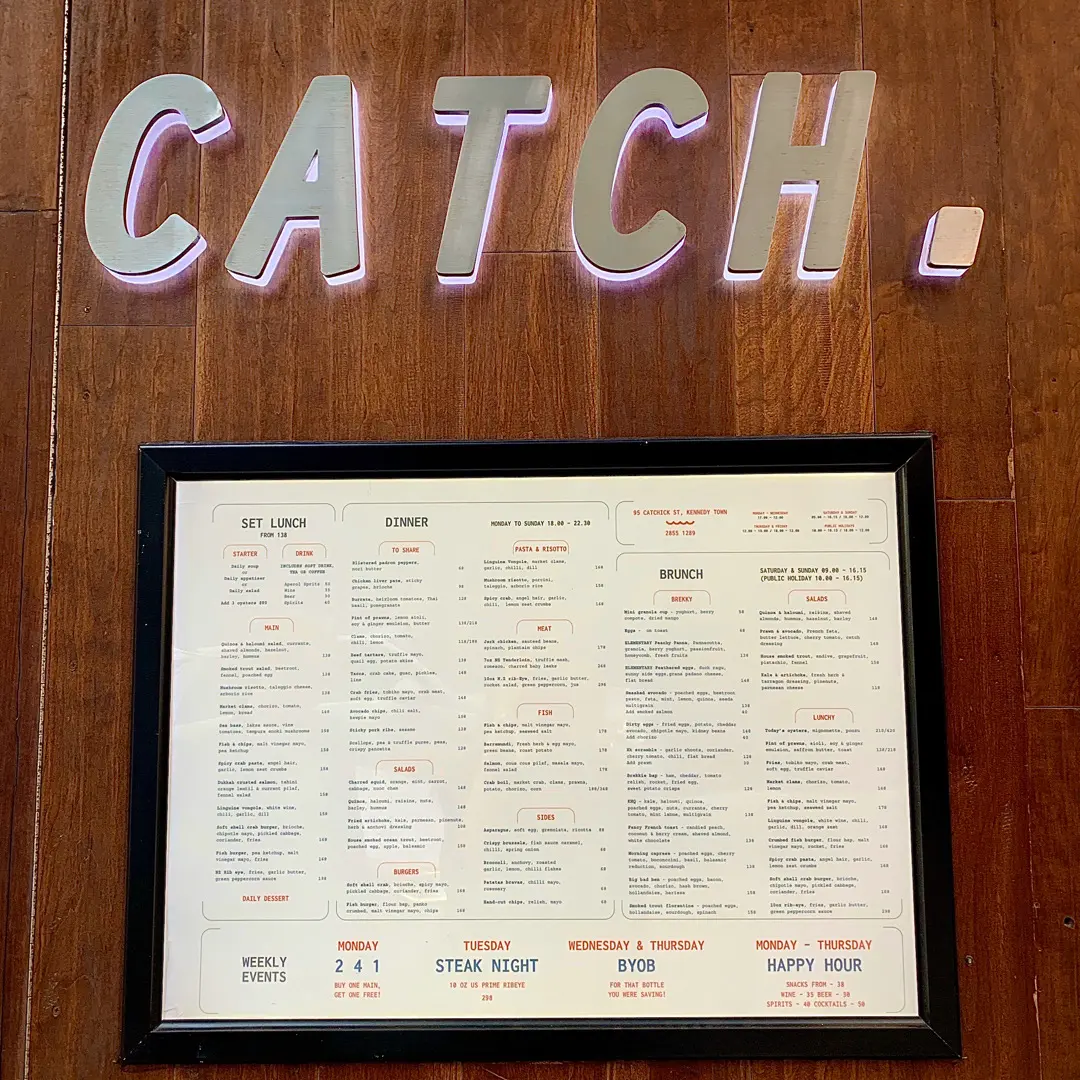 CATCH.
SET LUNCH
FROM 138
STARTER
Daily soup
or
Daily appetiser
or
Daily salad
Add 3 oysters $88
DRINK
INCLUDES SOFT DRINK,
TEA OR COFFEE
Aperol Spritz
Wine
Beer
Spirits
MAIN
Quinoa & haloumi salad, currants,
shaved almonds, hazelnut,
barley, hummus
Smoked trout salad, beetroot,
fennel, poached egg
Mushroom risotto, taleggio cheese,
arborio rice
Market clams, chorizo, tomato,
lemon, bread
tomatoes, tempura enoki mushrooms
Fish & chips, malt vinegar mayo,
pea ketchup
Spicy crab pasta, angel hair,
garlic, lemon zest crumbs
fennel salad
Linguine vongole, white wine,
chilli, garlic, dill
Soft shell crab burger, brioche,
chipotle mayo, pickled cabbage,
coriander, fries
Fish burger, pea ketchup, malt
vinegar mayo, fries
NZ Rib eye, fries, garlic butter,
green peppercorn sauce
DAILY DESSERT
DINNER
MONDAY TO SUNDAY 18.00 - 22.30
TO SHARE
Blistered padron peppers,
nori butter
Chicken liver pate, sticky
grapes, brioche
Burrata, heirloom tomatoes, Thai
basil, pomegranate
Pint of prawns, lemon aioli,
soy & ginger emulsion, butter
Clams, chorizo, tomato,
chilli, lemon
Beef tartare, truffle mayo,
quail egg, potato skins
Tacos, crab cake, guac, pickles,
lime
Crab fries, tobiko mayo, crab meat,
soft egg, truffle caviar
Avocado chips, chili salt,
kewpie mayo
Sticky pork ribs, sesame
Scallops, pea & truffle puree, peas,
crispy pancetta
SALADS
Charred squid, orange, soft, carrot,
cabbage, nuoc cham
Quinoa, haloumi, raisins, nuts,
barley, hummus
Fried artichoke, kale, parmesan, pinenuts,
herb & anchovi dressing
House smoked ocean trout, beetroot,
poached egg, apple, balsamic
BURGERS
Soft shell crab, brioche, spicy mayo,
pickled cabbage, coriander, fries
Fish burger, flour bap, panko
crumbed, malt vinegar mayo, chips
PASTA & RISOTTO
Linguine vongole, market clams,
garlic, chilli, dill
Mushroom risotto, porcini,
taleggio, arborio rice
Spicy crab, angel hair, garlic,
chilli, lemon zest crumbs
MEAT
Jerk chicken, sauteed beans,
spinach, plantain chips
7oz NZ Tenderloin, truffle mash,
romesco, charred baby leeks
10oz N.Z rib-Eye, fries, garlic butter,
rocket salad, green peppercorn, jus
FISH
Fish & chips, malt vinegar mayo,
pea ketchup, seaweed salt
Barramundi, fresh herb & egg mayo,
green beans, roast potato
Salmon, cous cous pilaf, masala mayo,
fennel salad
Crab boil, market crab, clams, prawns,
potato, chorizo, corn
SIDES
Asparagus, soft egg, gremolata, ricotta
Crispy brussels, fish sauce caramel,
chilli, spring onion
Broccoli, anchovy, roasted
garlic, lemon, chilli flakes
Potatas bravas, chilli mayo,
rosemary
Hand-cut chips, relish, mayo
95 CATCHICK ST, KENNEDY TOWN
2855 1289
MONDAY - WEDNESDAY
THURSDAY & FRIDAY
SATURDAY & SUNDAY
PUBLIC HOLIDAYS
BRUNCH
SATURDAY & SUNDAY 09.00 - 16.15
(PUBLIC HOLIDAY 10.00 - 16.15)
BREKKY
Mini granola cup - yoghurt, berry
compote, dried mango
Eggs - on toast
ELEMENTARY Peachy Panna, Pannacotta,
granola, berry yoghurt, passionfruit,
honeycomb, fresh fruits
ELEMENTARY Feathered eggs, duck ragu,
sunny side eggs, grana padano cheese,
flat bread
Smashed avocado - poached eggs, beetroot
pesto, feta, mint, lemon, quinoa, seeds
multigrain
Add smoked salmon
Dirty eggs - fried eggs, potato, cheddar
avocado, chipotle mayo, kidney beans
Add chorizo
XO scramble - garlic shoots, coriander,
cherry tomato, chili, flat bread
Add prawn
Brekkie bap - ham, cheddar, tomato
relish, rocket, fried egg,
sweet potato crisps
KHQ - kale, halumi, quinoa,
poached eggs, nuts, currants, cherry
tomato, mint labne, multigrain
Fancy French toast - candied peach,
coconut & berry cream, shaved almond,
white chocolate
Morning caprese - poached eggs, cherry
tomato, bocconcini, basil, balsamic
reduction, sourdough
Big bad ben - poached eggs, bacon,
avocado, chorizo, hash brown,
hollandaise, harissa
Smoked trout florentine - poached eggs,
hollandaise, sourdough, spinach
SALADS
Quinoa & halloumi, raisins, shaved
almonds, hummus, hazelnut, barley
Prawn & avocado, French feta,
butter lettuce, cherry tomato, ranch
dressing
House smoked trout, endive, grapefruit,
pistachio, fennel
Kale & artichoke, fresh herb &
tarragon dressing, pinenuts,
parmesan cheese
LUNCHY
Today's oysters, mignonette, ponzu
Pint of prawns, aioli, soy & ginger
emulsion, saffron butter, toast
Fries, tobiko mayo, crab meat,
soft egg, truffle caviar
Market clams, chorizo, tomato,
lemon
Fish & chips, malt vinegar mayo,
pea ketchup, seaweed salt
Linguine vongole, white wine, chilli,
garlic, dill, orange zest
Crumbed fish burger, flour bap, malt
vinegar mayo, rocket, fries
Spicy crab pasta, angel hair, garlic,
lemon zest crumbs
Soft shell crab burger, brioche,
chipotle mayo, pickled cabbage,
coriander, fries
10oz rib-eye, fries, garlic butter,
green peppercorn sauce
WEEKLY
EVENTS
MONDAY
2 4 1
BUY ONE MAIN,
GET ONE FREE!
TUESDAY
STEAK NIGHT
10 OZ US PRIME RIBEYE
298
WEDNESDAY & THURSDAY
BYOB
FOR THAT BOTTLE
YOU WERE SAVING!
MONDAY - THURSDAY
HAPPY HOUR
SNACKS FROM - 38
WINE - 35 BEER - 30
SPIRITS - 40 COCKTAILS - 50